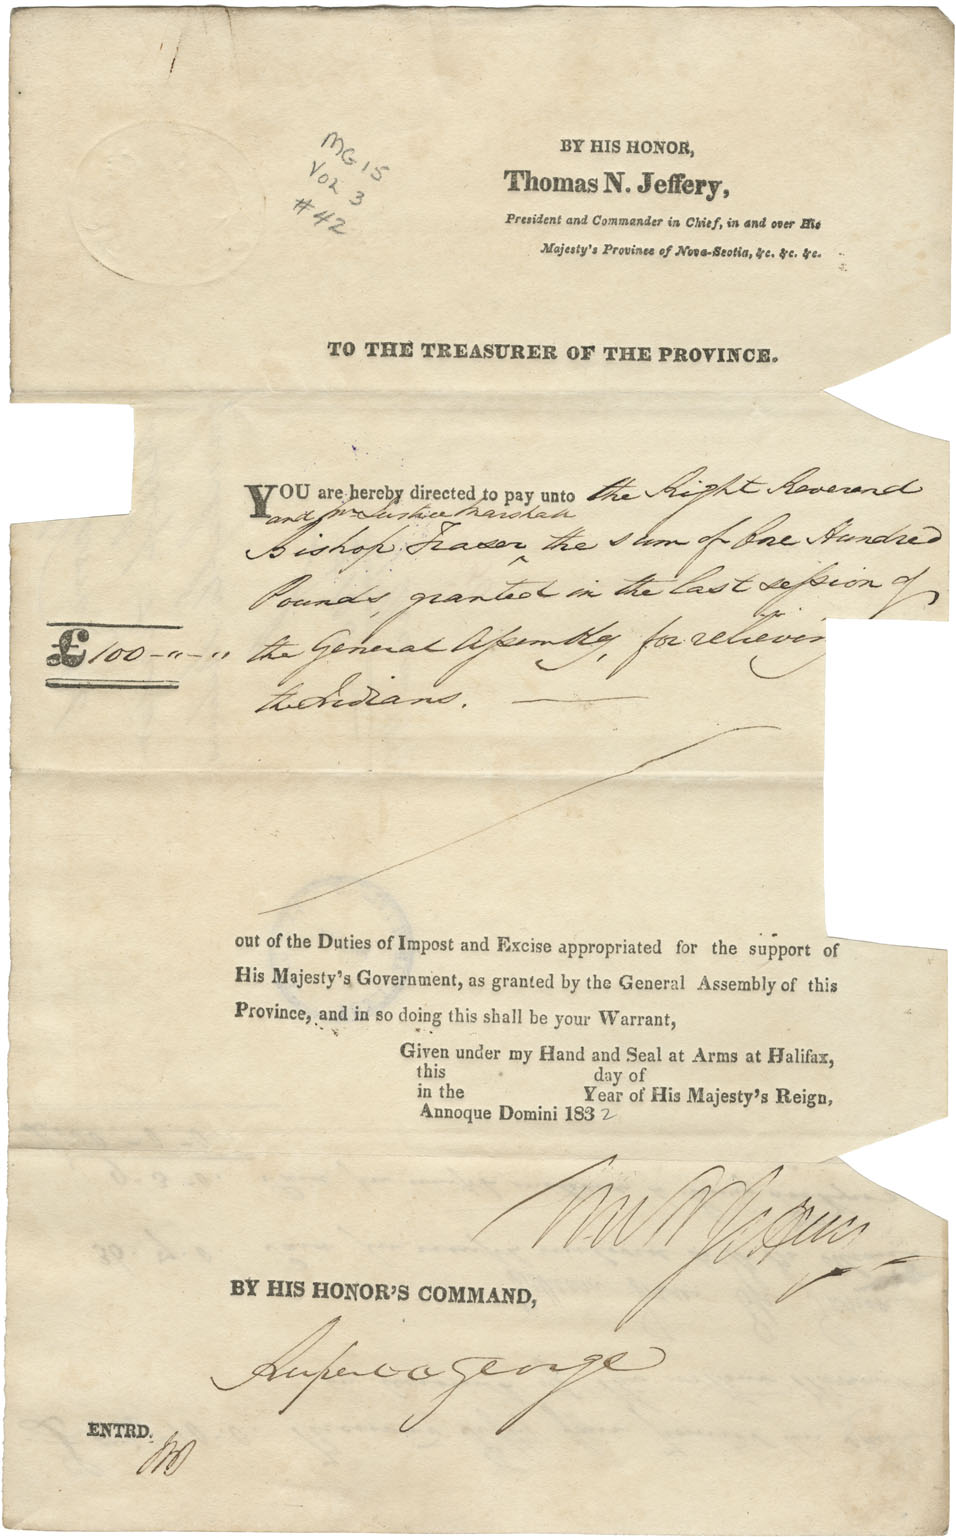 MG 15
Vol 3
#42
BY HIS HONOR,
Thomas N. Jeffery,
President and Commander in Chief, in and over His
Majesty's Province of Nova-Scotia, &c. &c. &c.
TO THE TREASURER OF THE PROVINCE.
YOU are hereby directed to pay unto the Right Reverend
and Mr Justice Marshall
Bishop Fraser ^ the sum of One Hundred
Pounds, granted in the last session of
£ 100 -"-" the General Assembly, for relieving
the Indians.
out of the Duties of Impost and Excise appropriated for the support of
His Majesty's Government, as granted by the General Assembly of this
Province, and in so doing this shall be your Warrant,
Given under my Hand and Seal at Arms at Halifax,
this day of
in the Year of His Majesty's Reign,
Annoque Domini 1832
BY HIS HONOR'S COMMAND,
Rupert D George
ENTRD.